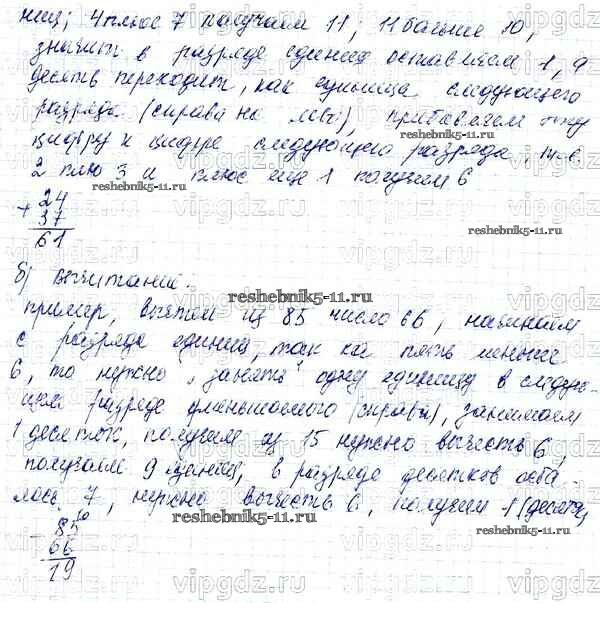 ниц; 4 плюс 7 получаем 11; 11 больше 10,
значит в разряде единиц оставляем 1, а
десять переходит, как единица следующего
разряда (справа на лево), прибавляем эту
цифру к цифре следующего разряда, т.е.
2 плю 3 и плюс еще 1 получаем 6
+ 24
37
61
б) Вычитание.
Пример, вычтем из 85 число 66, начинаем
с разряда единиц, так ка пять меньше
6, то нужно "занять" одну единицу в следую-
щем разряде уменьшаемого (справа), занимаем
1 десяток, получаем из 15 нужно вычесть 6,
получаем 9 единиц, в разряде десятков оста-
лось 7, нужно вычесть 6, получим 1 (десяток)
10
- 85
66
19
vipgdz.ru
reshebnik5-11.ru